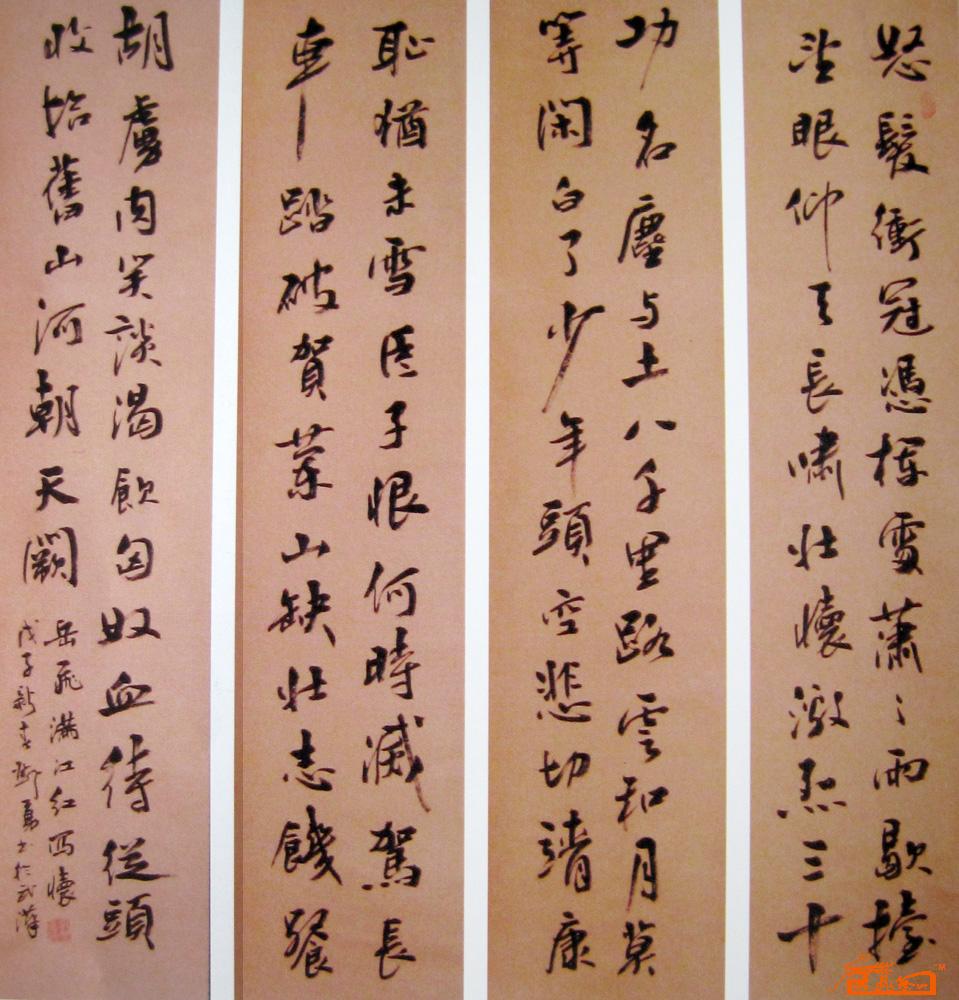 怒髮衝冠憑欄處蕭〻雨歇擡
望眼仰天長嘯壯懷激烈三十
功名塵与土八千里路雲和月莫
等閑白了少年頭空悲切靖康
恥猶未雪臣子恨何時滅駕長
車踏破賀蘭山缺壯志饑餐
胡虜肉笑談渴飲匈奴血待從頭
收拾舊山河朝天闕
岳飛滿江紅寫懷
戊子新春勇書於武漢